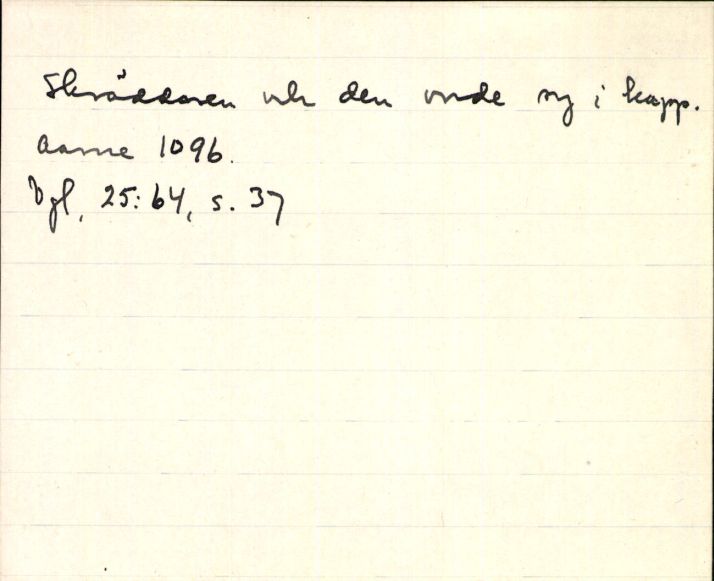 Skräddaren och den onde sy i kapp.
Aarne 1096.
Vgl, 25:64, s. 37